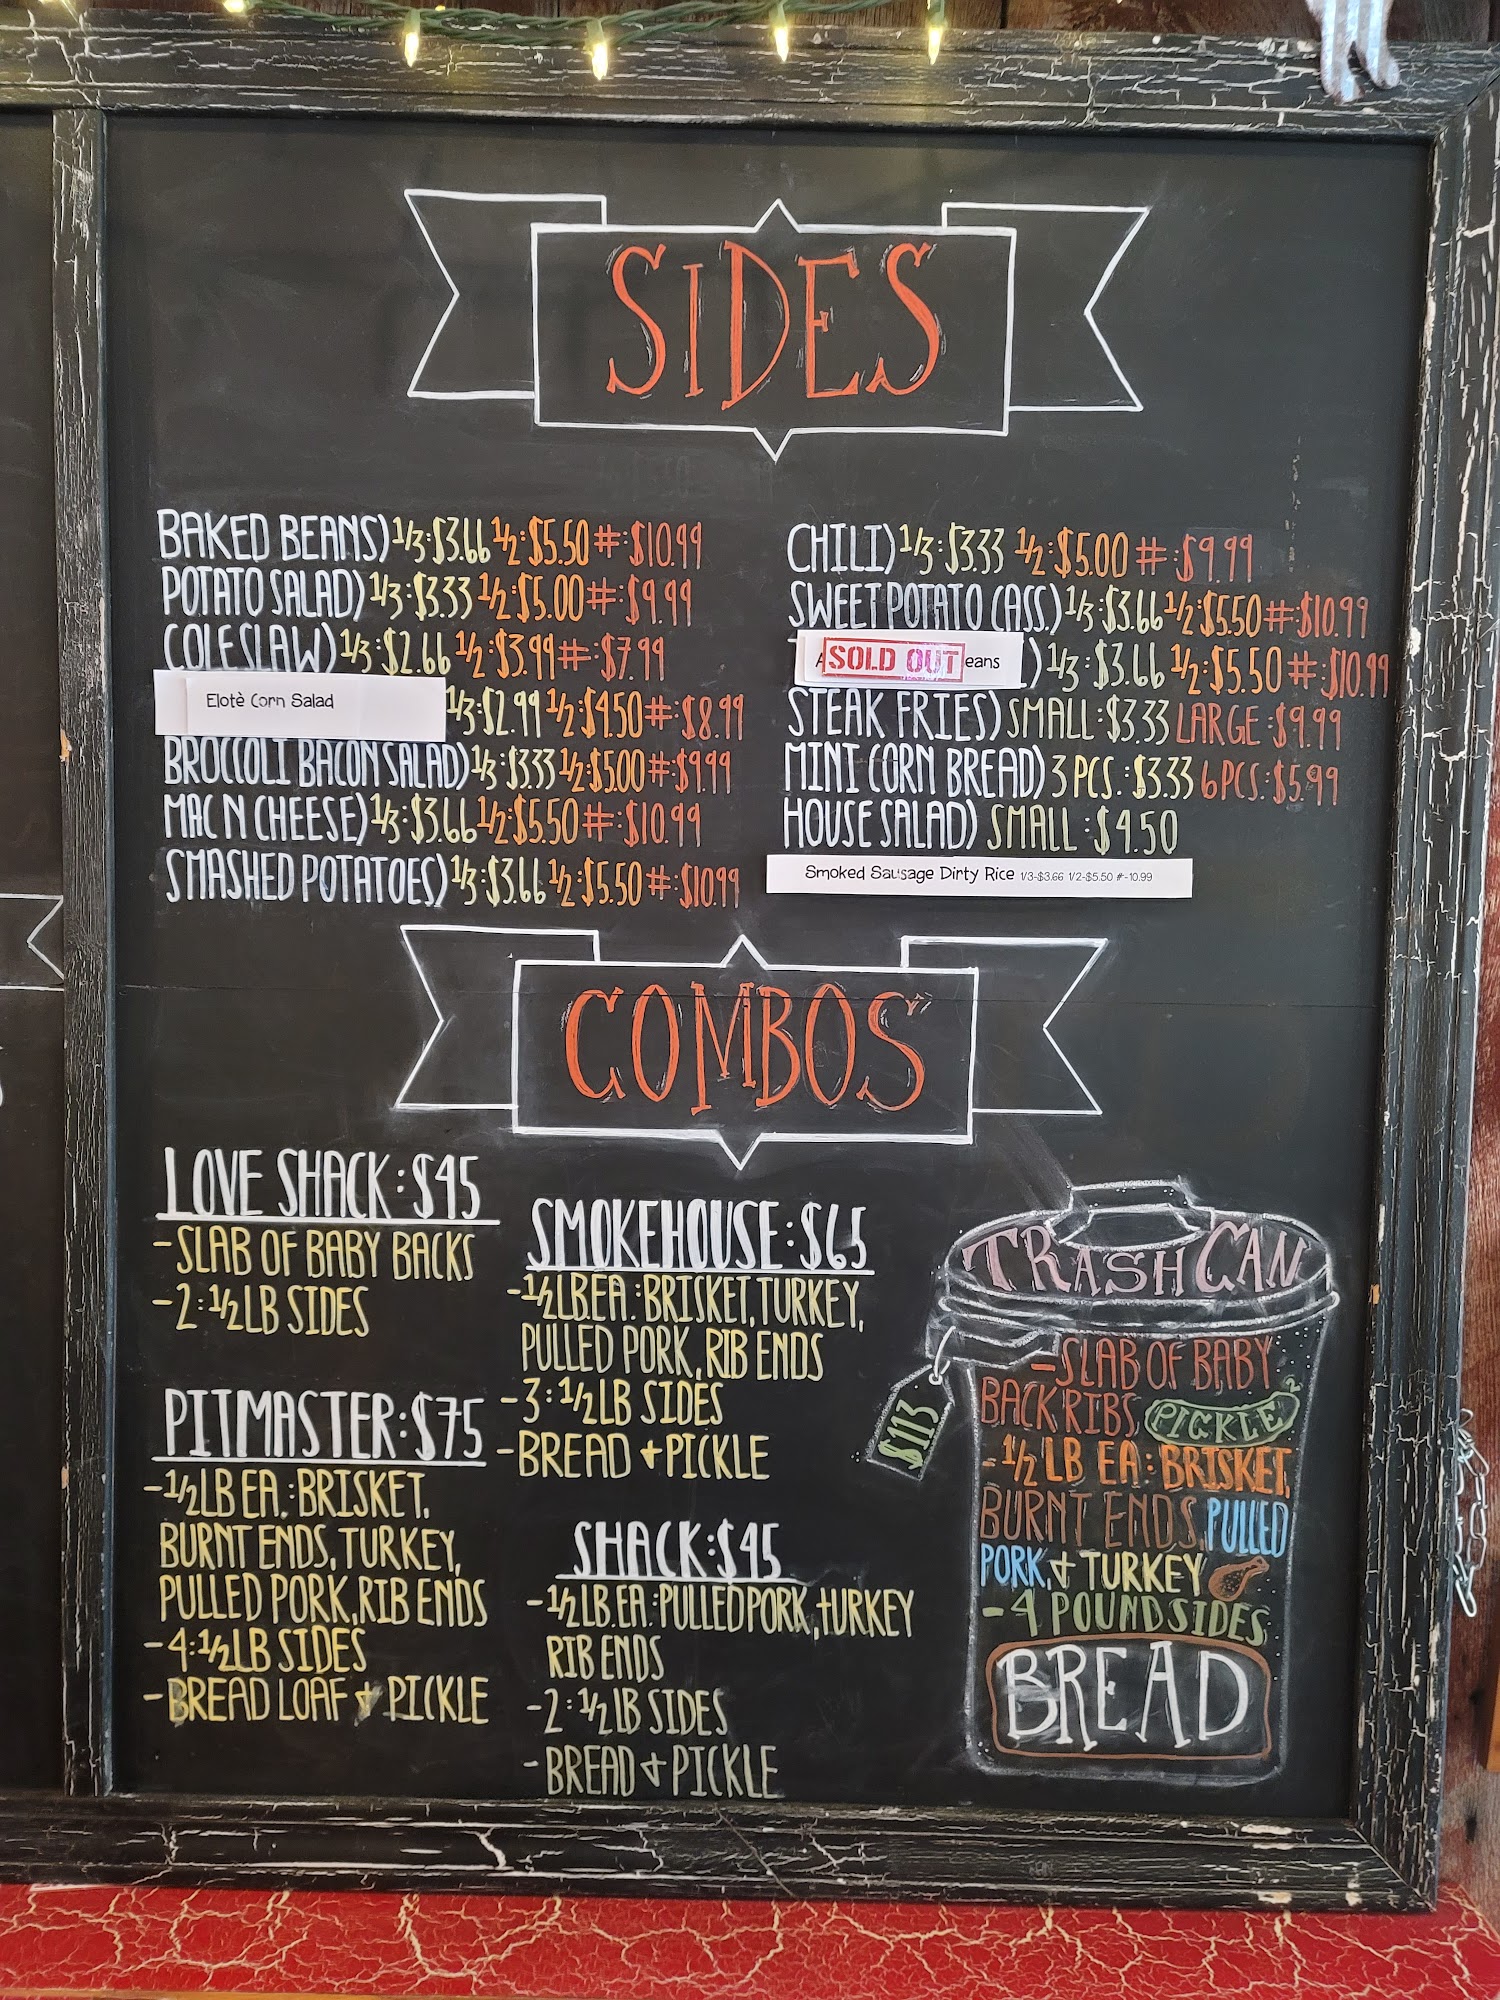 SIDES
BAKED BEANS) 1/3:$3.66 1/2:$5.50 #:$10.99
POTATO SALAD) 1/3:$3.33 1/2:$5.00 #:$9.99
COLESLAW) 1/3:$2.66 1/2:$3.99 #:$7.99
Elotè Corn Salad 1/3:$2.99 1/2:$4.50 #:$8.99
BROCCOLI BACON SALAD) 1/3:$3.33 1/2:$5.00 #:$9.99
MAC N CHEESE) 1/3:$3.66 1/2:$5.50 #:$10.99
SMASHED POTATOES) 1/3:$3.66 1/2:$5.50 #:$10.99
CHILI) 1/3:$3.33 1/2:$5.00 #:$9.99
SWEET POTATO (ASS.) 1/3:$3.66 1/2:$5.50 #:$10.99
SOLD OUT eans ) 1/3:$3.66 1/2:$5.50 #:$10.99
STEAK FRIES) SMALL:$3.33 LARGE:$9.99
MINI CORN BREAD) 3 PCS.:$3.33 6 PCS:$5.99
HOUSE SALAD) SMALL:$4.50
Smoked Sausage Dirty Rice 1/3-$3.66 1/2-$5.50 #-10.99
COMBOS
LOVE SHACK:$45
-SLAB OF BABY BACKS
-2:1/2 LB SIDES
PITMASTER:$75
-1/2 LB EA.:BRISKET,
BURNT ENDS, TURKEY,
PULLED PORK, RIB ENDS
-4:1/2 LB SIDES
-BREAD LOAF & PICKLE
SMOKEHOUSE:$65
-1/2 LB.EA.:BRISKET, TURKEY,
PULLED PORK, RIB ENDS
-3:1/2 LB SIDES
-BREAD & PICKLE
SHACK:$45
-1/2 LB.EA:PULLED PORK, TURKEY
RIB ENDS
-2:1/2 LB SIDES
-BREAD & PICKLE
TRASH CAN
$113
-SLAB OF BABY
BACK RIBS, PICKLE
-1/2 LB EA:BRISKET,
BURNT ENDS, PULLED
PORK, & TURKEY
-4 POUND SIDES
BREAD